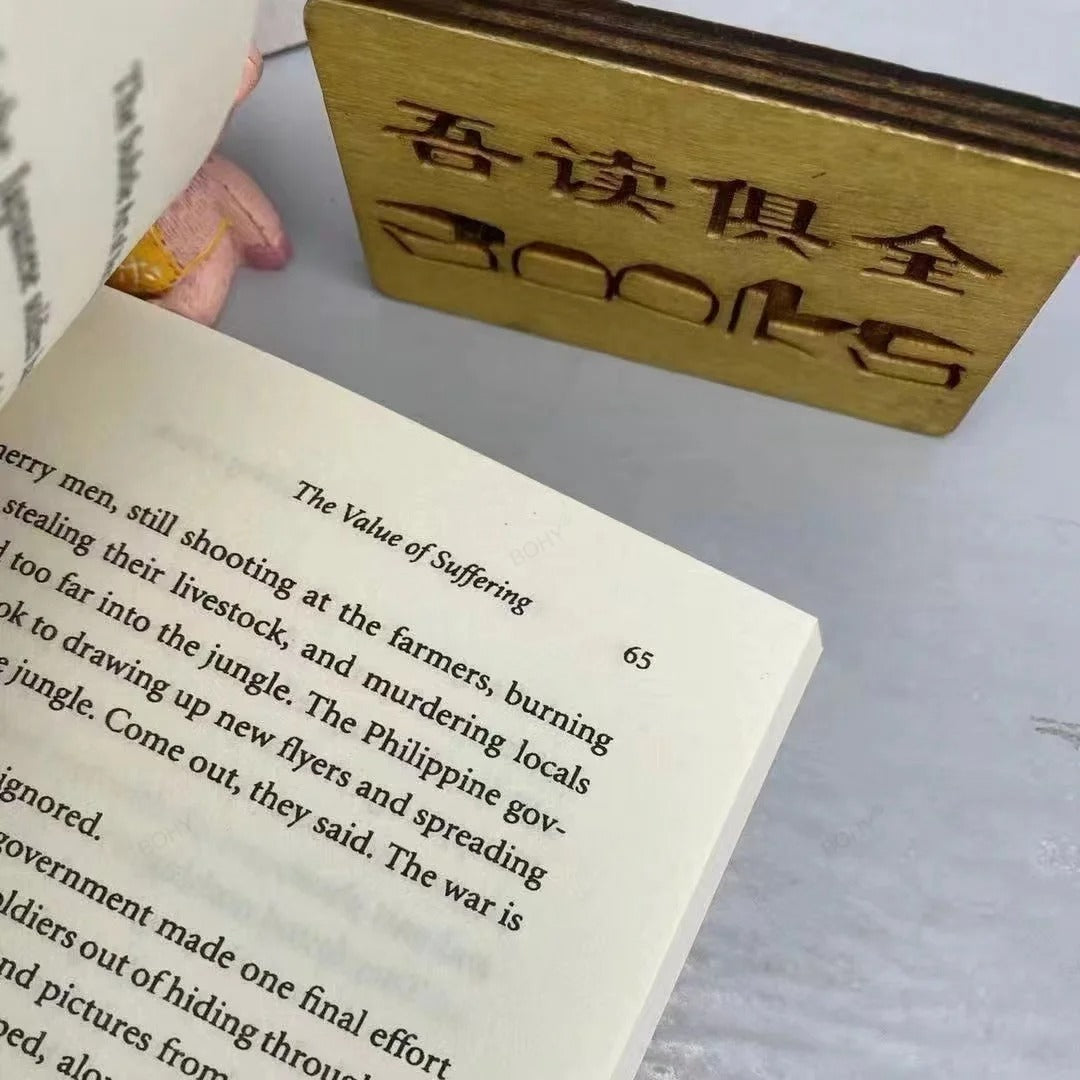 吾读俱全
BOOKS
The Value of Suffering
65
merry men, still shooting at the farmers, burning
stealing their livestock, and murdering locals
too far into the jungle. The Philippine gov-
to drawing up new flyers and spreading
jungle. Come out, they said. The war is
ignored.
government made one final effort
out of hiding through
pictures from
BOHY
BOHY
BOHY